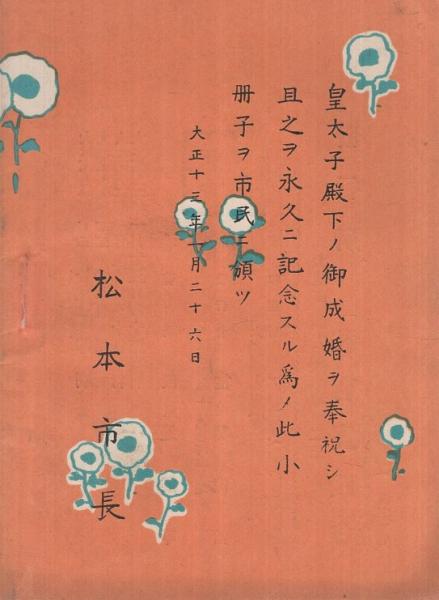 皇太子殿下ノ御成婚ヲ奉祝シ
且之ヲ永久ニ記念スル為メ此小
册子ヲ市民ニ頒ツ
大正十三年一月二十六日
松本市長